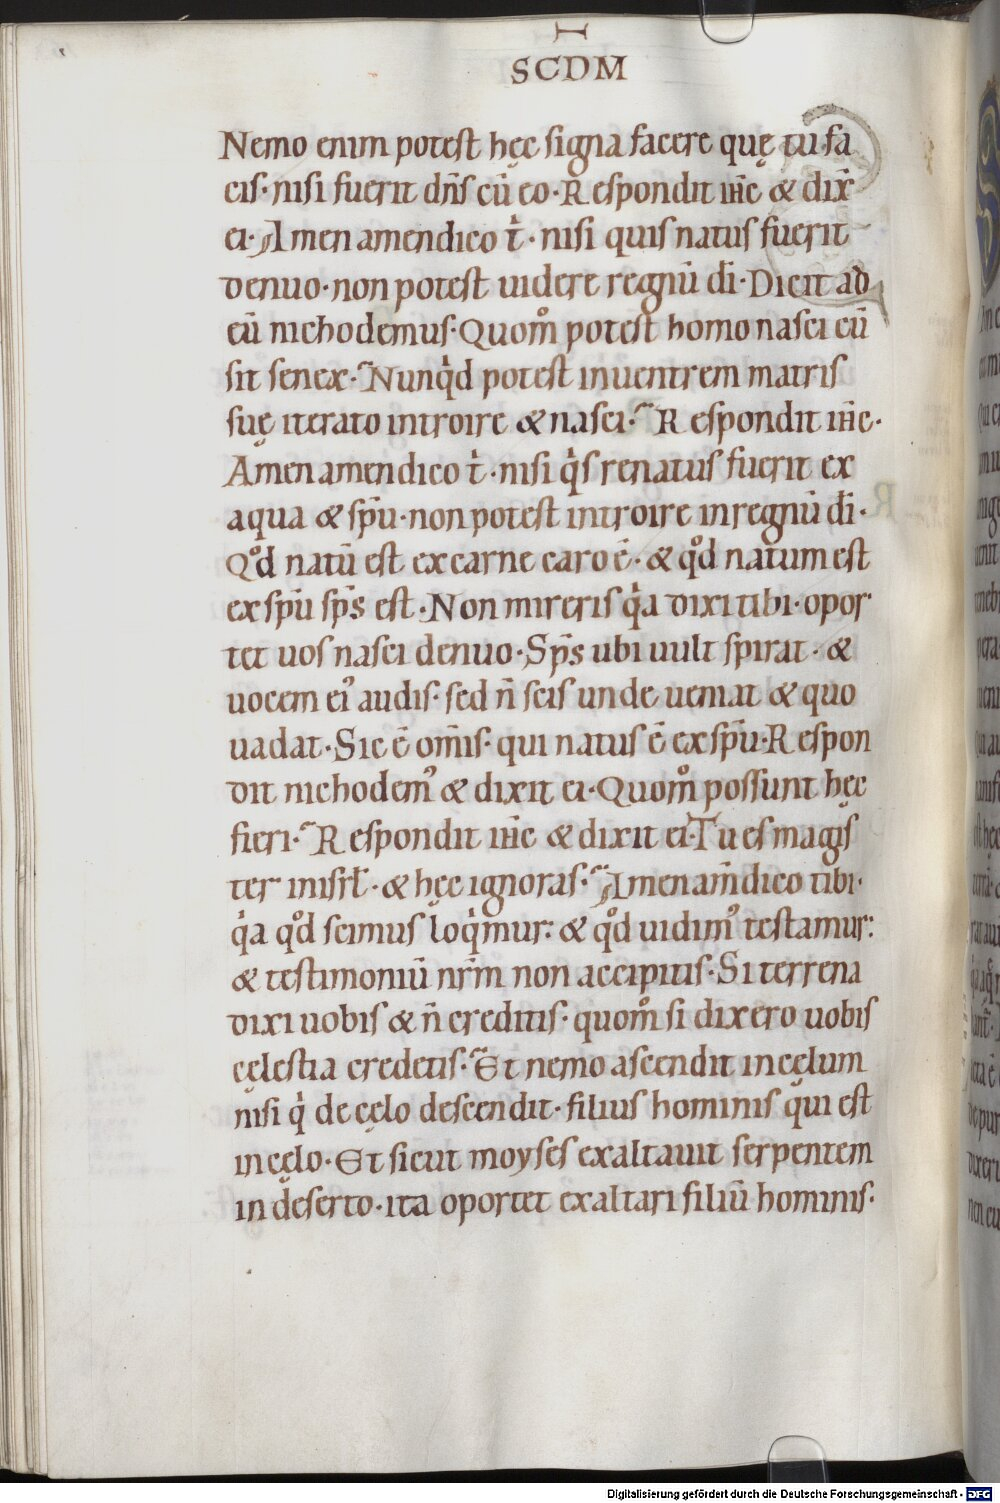 SCDM
Nemo enim potest hęc signa facere quę tu fa
cis· nisi fuerit dn̄s cū eo· Respondit ih̄c & dix̄
ei· Amen amen dico t̍· nisi quis natus fuerit
denuo· non potest uidere regnū dī· Dicit ad
eū nichodemus· Quom̊ potest homo nasci cū
sit senex· Nunq̍d potest in uentrem matris
suę iterato introire & nasci· Respondit ih̄c·
Amen amen dico t̍· nisi q̍s renatus fuerit ex
aqua & sp̄u· non potest introire in regnū dī·
Qd̊ natū est ex carne caro ē· & qd̊ natum est
ex sp̄u sp̄s est· Non mireris q̍a dixi tibi· opor
tet uos nasci denuo· Sp̄s ubi uult spirat· &
uocem ei᾿ audis· sed n̄ scis unde ueniat & quo
uadat· Sic ē om̄is· qui natus ē ex sp̄u· Respon
dit nichodem᾿ & dixit ei· Quom̊ possunt hęc
fieri· Respondit ih̄c & dixit ei· Tu es magis
ter in isrl̄· & hęc ignoras· Amen am̄ dico tibi·
q̍a qd̊ scimus loq̍mur: & qd̊ uidim᾿ testamur:
& testimoniū nr̄m non accipitis· Si terrena
dixi uobis & n̄ creditis· quom̊ si dixero uobis
cęlestia credetis· Et nemo ascendit in cęlum
nisi q̍ de cęlo descendit· filius hominis qui est
in cęlo· Et sicut moyses exaltauit serpentem
in deserto· ita oportet exaltari filiū hominis·
R
Digitalisierung gefördert durch die Deutsche Forschungsgemeinschaft - DFG